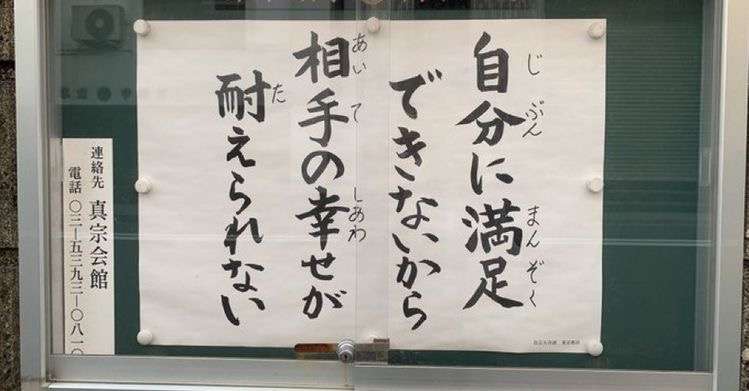 自分に満足
できないから
相手の幸せが
耐えられない
じ ぶん
まん ぞく
あい て
しあわ
た
連絡先 真宗会館
電話 〇三―五三九三―〇八一〇